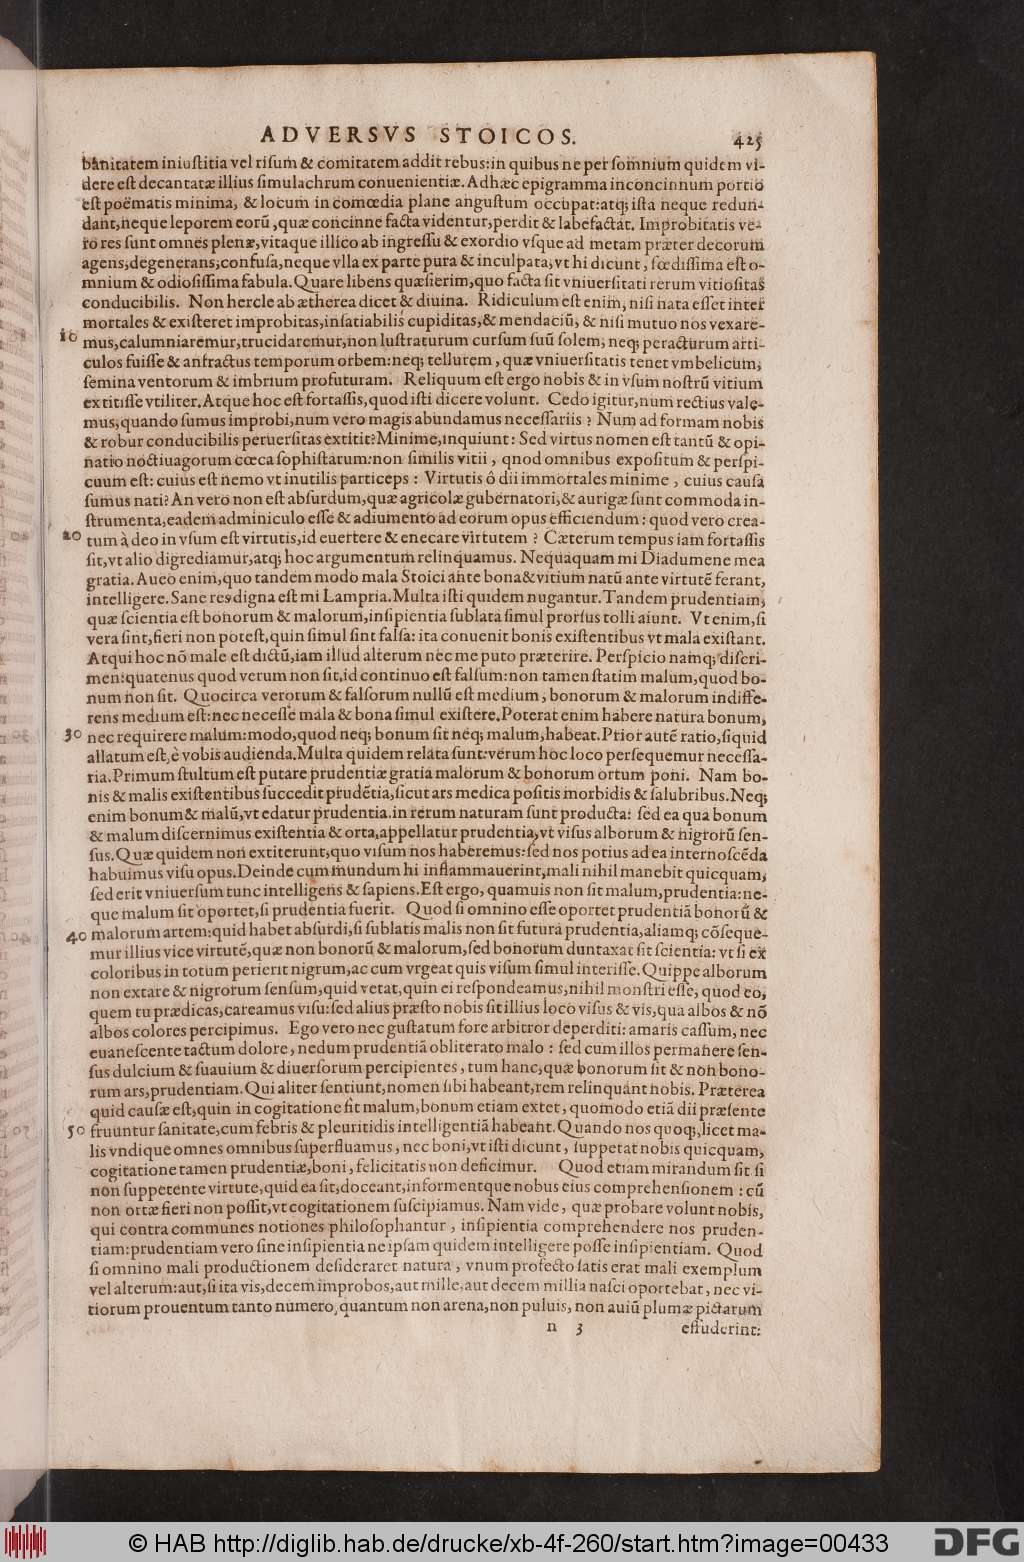 ADVERSVS STOICOS. 425
banitatem iniuſtitia vel riſum & comitatem addit rebus: in quibus ne per ſomnium quidem vi-
dere eſt decantatæ illius ſimulachrum conuenientiæ. Ad hæc epigramma inconcinnum portio
eſt poëmatis minima, & locum in comœdia plane anguſtum occupat: atq; iſta neque redun-
dant, neque leporem eorū, quæ concinne facta videntur, perdit & labefactat. Improbitatis ve-
ro res ſunt omnes plenæ, vitaque illico ab ingreſſu & exordio vſque ad metam præter decorum
agens, degenerans, confuſa, neque vlla ex parte pura & inculpata, vt hi dicunt, fœdiſſima eſt o-
mnium & odioſiſſima fabula. Quare libens quæſierim, quo facta ſit vniuerſitati rerum vitioſitas
conducibilis. Non hercle ab ætherea dicet & diuina. Ridiculum eſt enim, niſi nata eſſet inter
mortales & exiſteret improbitas, inſatiabilis cupiditas, & mendaciū, & niſi mutuo nos vexare-
10 mus, calumniaremur, trucidaremur, non luſtraturum curſum ſuū ſolem, neq; peracturum arti-
culos fuiſſe & anfractus temporum orbem: neq; tellurem, quæ vniuerſitatis tenet vmbelicum,
ſemina ventorum & imbrium profuturam. Reliquum eſt ergo nobis & in vſum noſtrū vitium
extitiſſe vtiliter. Atque hoc eſt fortaſſis, quod iſti dicere volunt. Cedo igitur, num rectius vale-
mus, quando ſumus improbi, num vero magis abundamus neceſſariis? Num ad formam nobis
& robur conducibilis peruerſitas extitit? Minime, inquiunt: Sed virtus nomen eſt tantū & opi-
natio noctiuagorum cœca ſophiſtarum: non ſimilis vitii, qnod omnibus expoſitum & perſpi-
cuum eſt: cuius eſt nemo vt inutilis particeps: Virtutis ô dii immortales minime, cuius cauſa
ſumus nati? An vero non eſt abſurdum, quæ agricolæ gubernatori, & aurigæ ſunt commoda in-
ſtrumenta, eadem adminiculo eſſe & adiumento ad eorum opus efficiendum: quod vero crea-
20 tum à deo in vſum eſt virtutis, id euertere & enecare virtutem? Cæterum tempus iam fortaſſis
ſit, vt alio digrediamur, atq; hoc argumentum relinquamus. Nequaquam mi Diadumene mea
gratia. Aueo enim, quo tandem modo mala Stoici ante bona & vitium natū ante virtutē ferant,
intelligere. Sane res digna eſt mi Lampria. Multa iſti quidem nugantur. Tandem prudentiam,
quæ ſcientia eſt bonorum & malorum, inſipientia ſublata ſimul prorſus tolli aiunt. Vt enim, ſi
vera ſint, fieri non poteſt, quin ſimul ſint falſa: ita conuenit bonis exiſtentibus vt mala exiſtant.
Atqui hoc nō male eſt dictū, iam illud alterum nec me puto præterire. Perſpicio namq; diſcri-
men: quatenus quod verum non ſit, id continuo eſt falſum: non tamen ſtatim malum, quod bo-
num non ſit. Quocirca verorum & falſorum nullū eſt medium, bonorum & malorum indiffe-
rens medium eſt: nec neceſſe mala & bona ſimul exiſtere. Poterat enim habere natura bonum,
30 nec requirere malum: modo, quod neq; bonum ſit neq; malum, habeat. Prior autē ratio, ſi quid
allatum eſt, è vobis audienda. Multa quidem relata ſunt: verum hoc loco perſequemur neceſſa-
ria. Primum ſtultum eſt putare prudentiæ gratia malorum & bonorum ortum poni. Nam bo-
nis & malis exiſtentibus ſuccedit prudētia, ſicut ars medica poſitis morbidis & ſalubribus. Neq;
enim bonum & malū, vt edatur prudentia, in rerum naturam ſunt producta: ſed ea qua bonum
& malum diſcernimus exiſtentia & orta, appellatur prudentia, vt viſus alborum & nigrorū ſen-
ſus. Quæ quidem non extiterunt, quo viſum nos haberemus: ſed nos potius ad ea internoſcēda
habuimus viſu opus. Deinde cum mundum hi inflammauerint, mali nihil manebit quicquam,
ſed erit vniuerſum tunc intelligens & ſapiens. Eſt ergo, quamuis non ſit malum, prudentia: ne-
que malum ſit oportet, ſi prudentia fuerit. Quod ſi omnino eſſe oportet prudentiā bonorū &
40 malorum artem: quid habet abſurdi, ſi ſublatis malis non ſit futura prudentia, aliamq; cōſeque-
mur illius vice virtutē, quæ non bonorū & malorum, ſed bonorum duntaxat ſit ſcientia: vt ſi ex
coloribus in totum perierit nigrum, ac cum vrgeat quis viſum ſimul interiſſe. Quippe alborum
non extare & nigrorum ſenſum, quid vetat, quin ei reſpondeamus, nihil monſtri eſſe, quod eo,
quem tu prædicas, careamus viſu: ſed alius præſto nobis ſit illius loco viſus & vis, qua albos & nō
albos colores percipimus. Ego vero nec guſtatum fore arbitror deperditi: amaris caſſum, nec
euaneſcente tactum dolore, nedum prudentiā obliterato malo: ſed cum illos permanere ſen-
ſus dulcium & ſuauium & diuerſorum percipientes, tum hanc, quæ bonorum ſit & non bono-
rum ars, prudentiam. Qui aliter ſentiunt, nomen ſibi habeant, rem relinquant nobis. Præterea
quid cauſæ eſt, quin in cogitatione ſit malum, bonum etiam extet, quomodo etiā dii præſente
50 fruuntur ſanitate, cum febris & pleuritidis intelligentiā habeant. Quando nos quoq;, licet ma-
lis vndique omnes omnibus ſuperfluamus, nec boni, vt iſti dicunt, ſuppetat nobis quicquam,
cogitatione tamen prudentiæ, boni, felicitatis non deficimur. Quod etiam mirandum ſit ſi
non ſuppetente virtute, quid ea ſit, doceant, informentque nobus eius comprehenſionem: cū
non ortæ fieri non poſſit, vt cogitationem ſuſcipiamus. Nam vide, quæ probare volunt nobis,
qui contra communes notiones philoſophantur, inſipientia comprehendere nos pruden-
tiam: prudentiam vero ſine inſipientia ne ipſam quidem intelligere poſſe inſipientiam. Quod
ſi omnino mali productionem deſideraret natura, vnum profecto ſatis erat mali exemplum
vel alterum: aut, ſi ita vis, decem improbos, aut mille, aut decem millia naſci oportebat, nec vi-
tiorum prouentum tanto numero, quantum non arena, non puluis, non auiū plumæ pictarum
n 3 effuderint:
© HAB http://diglib.hab.de/drucke/xb-4f-260/start.htm?image=00433
DFG